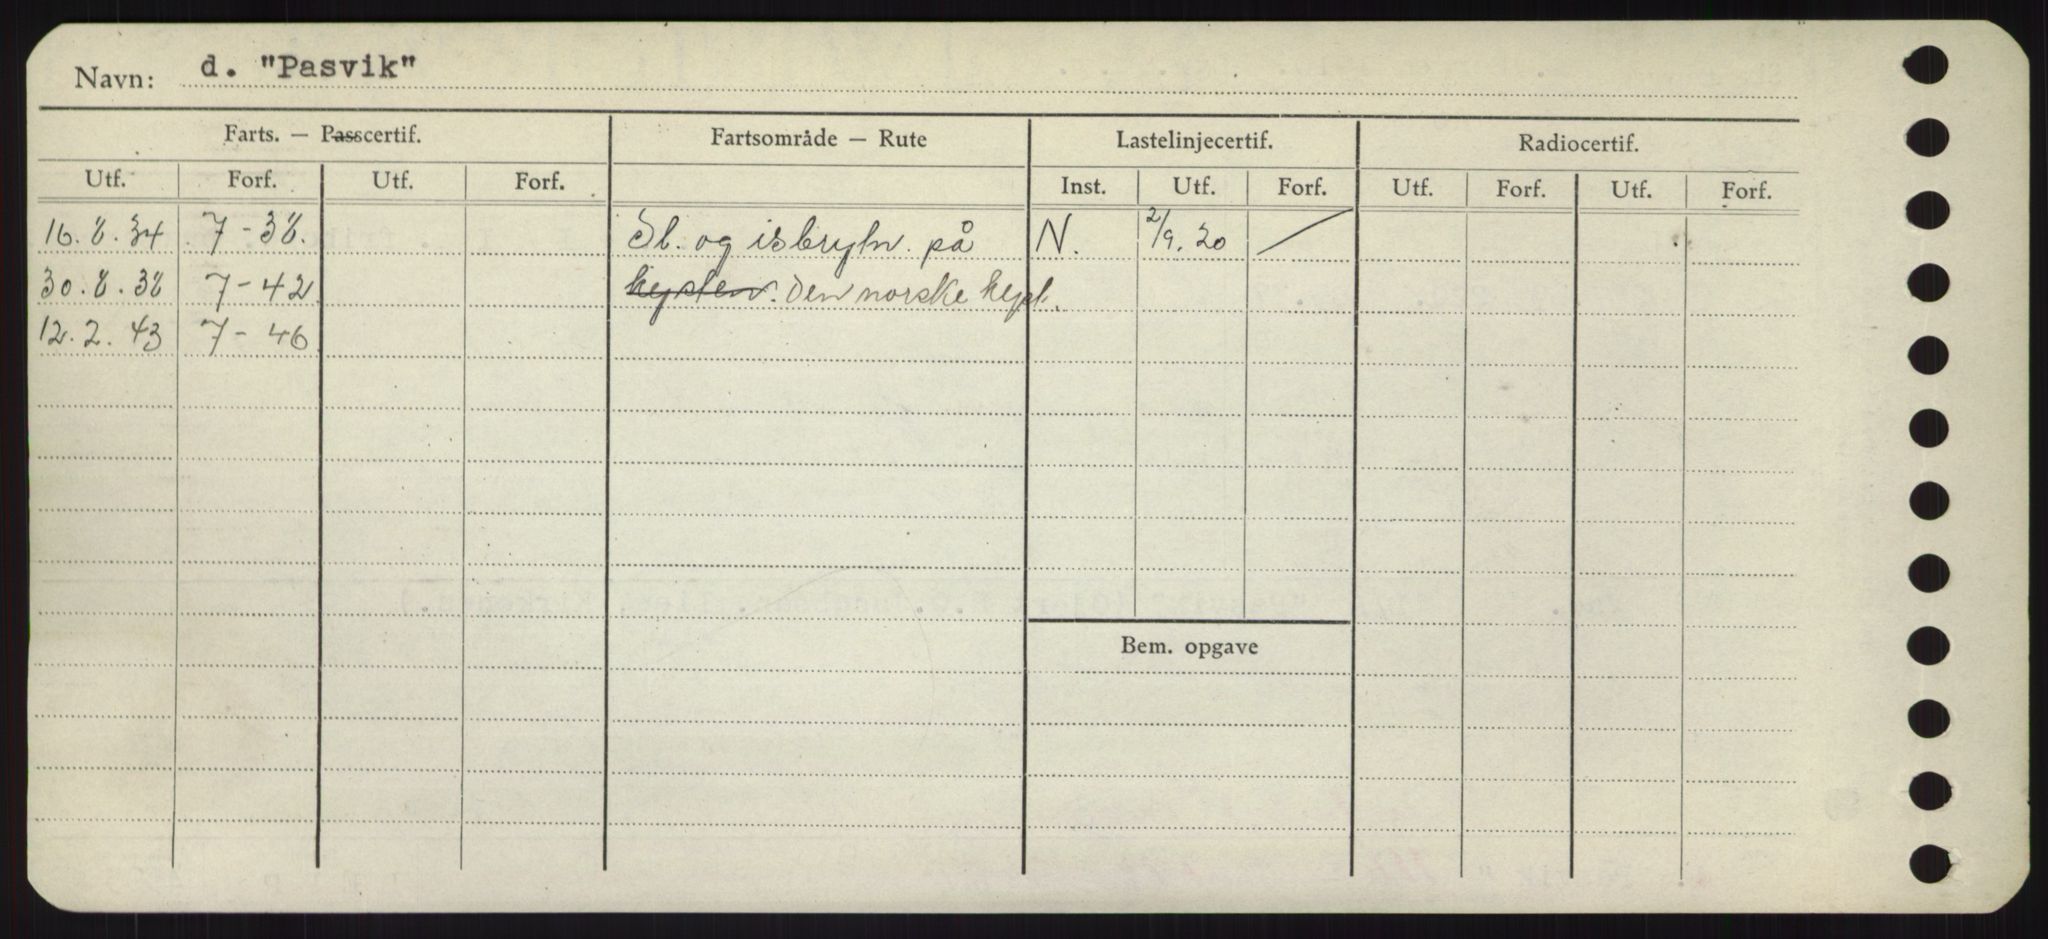 Navn: d. "Pasvik"
Farts. — Passcertif. Fartsområde — Rute Lastelinjecertif. Radiocertif.
Utf. Forf. Utf. Forf. Inst. Utf. Forf. Utf. Forf. Utf. Forf.
16.8.34 7-38. Sl. og isbrytn. på N. 2/9.30
30.8.38 7-42 kysten. Den norske kyst.
12.2.43 7-46
Bem. opgave